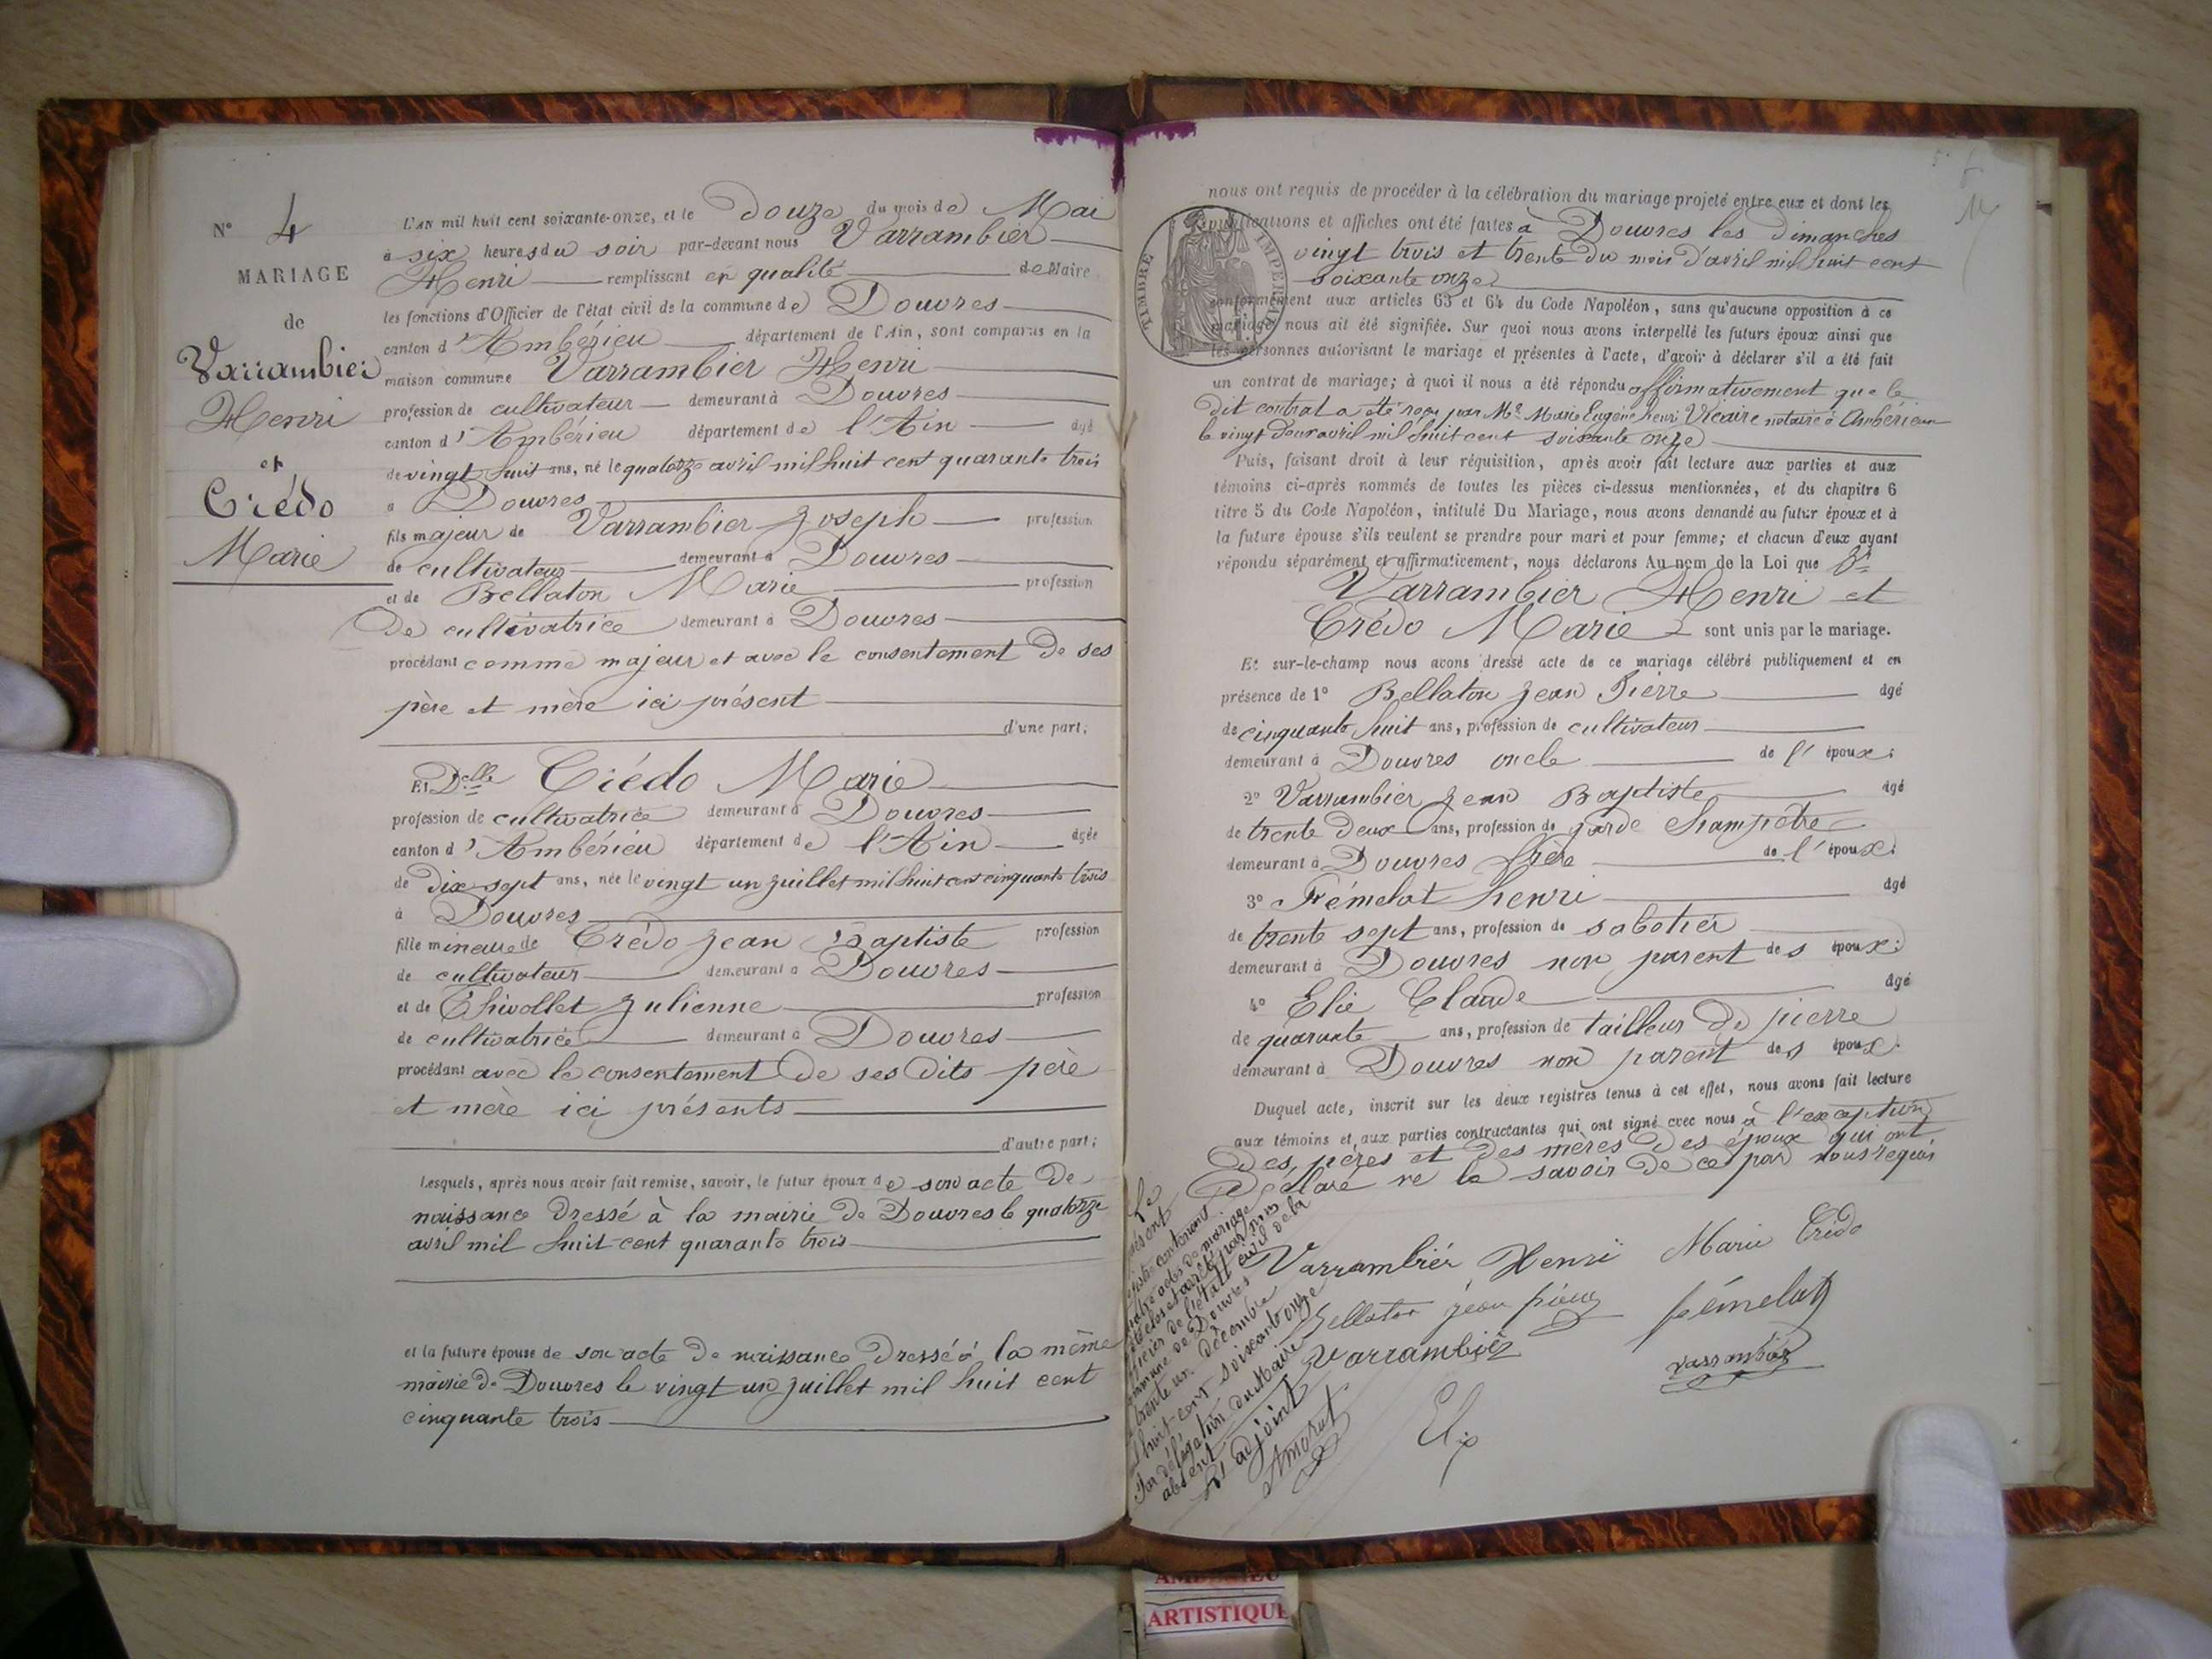 N° 4
MARIAGE
de
Varrambier
Henri
et
Crédo
Marie
L'AN mil huit cent soixante-onze, et le douze du mois de Mai
à six heures du soir par-devant nous Varrambier
Henri remplissant en qualité de Maire
les fonctions d'Officier de l'état civil de la commune de Douvres
canton d'Ambérieu département de l'Ain, sont comparus en la
maison commune Varrambier Henri
profession de cultivateur demeurant à Douvres
canton d'Ambérieu département de l'Ain âgé
de vingt huit ans, né le quatorze avril mil huit cent quarante trois
à Douvres
fils majeur de Varrambier Joseph profession
de cultivateur demeurant à Douvres
et de Bellaton Marie profession
de cultivatrice demeurant à Douvres
procédant comme majeur et avec le consentement de ses
père et mère ici présent
d'une part;
Et Delle Crédo Marie
profession de cultivatrice demeurant à Douvres
canton d'Ambérieu département de l'Ain âgée
de dix sept ans, née le vingt un juillet mil huit cent cinquante trois
à Douvres
fille mineure de Crédo Jean Baptiste profession
de cultivateur demeurant à Douvres
et de Chivollet Julienne profession
de cultivatrice demeurant à Douvres
procédant avec le consentement de ses dits père
et mère ici présents
d'autre part;
Lesquels, après nous avoir fait remise, savoir, le futur époux de son acte de
naissance dressé à la mairie de Douvres le quatorze
avril mil huit cent quarante trois
et la future épouse de son acte de naissance dressé à la même
mairie de Douvres le vingt un juillet mil huit cent
cinquante trois
nous ont requis de procéder à la célébration du mariage projeté entre eux et dont les
publications et affiches ont été faites à Douvres les dimanches
vingt trois et trente du mois d'avril mil huit cent
soixante onze
TIMBRE IMPERIAL
conformément aux articles 63 et 64 du Code Napoléon, sans qu'aucune opposition à ce
mariage nous ait été signifiée. Sur quoi nous avons interpellé les futurs époux ainsi que
les personnes autorisant le mariage et présentes à l'acte, d'avoir à déclarer s'il a été fait
un contrat de mariage; à quoi il nous a été répondu affirmativement que le
dit contrat a été reçu par Me Marie Eugène henri Vicaire notaire à Ambérieu
le vingt deux avril mil huit cent soixante onze
Puis, faisant droit à leur réquisition, après avoir fait lecture aux parties et aux
témoins ci-après nommés de toutes les pièces ci-dessus mentionnées, et du chapitre 6
titre 5 du Code Napoléon, intitulé Du Mariage, nous avons demandé au futur époux et à
la future épouse s'ils veulent se prendre pour mari et pour femme; et chacun d'eux ayant
répondu séparément et affirmativement, nous déclarons Au nom de la Loi que
Varrambier Henri et
Crédo Marie sont unis par le mariage.
Et sur-le-champ nous avons dressé acte de ce mariage célébré publiquement et en
présence de 1° Bellaton Jean Pierre âgé
de cinquante huit ans, profession de cultivateur
demeurant à Douvres oncle de l'époux:
2° Varrambier Jean Baptiste âgé
de trente deux ans, profession de garde champêtre
demeurant à Douvres frère de l'époux:
3° Frémelat henri âgé
de trente sept ans, profession de sabotier
demeurant à Douvres non parent des époux:
4° Elie Claude âgé
de quarante ans, profession de tailleur de pierre
demeurant à Douvres non parent des époux.
Duquel acte, inscrit sur les deux registres tenus à cet effet, nous avons fait lecture
aux témoins et aux parties contractantes qui ont signé avec nous à l'exception
des pères et des mères des époux qui ont
déclaré ne le savoir de ce par nous requis
Varrambiér Henri Marie Crédo
Bellaton jean pierre fémelat
Varrambier varrambier
Elie
Le
présent
registre contenant
quatre actes de mariage
a été clos et arrêté par nous
officier de l'état civil de la
commune de Douvres
le trente un décembre
mil huit cent soixante onze
Par délégation du Maire
absent
L'adjoint
Amorat
ARTISTIQUE